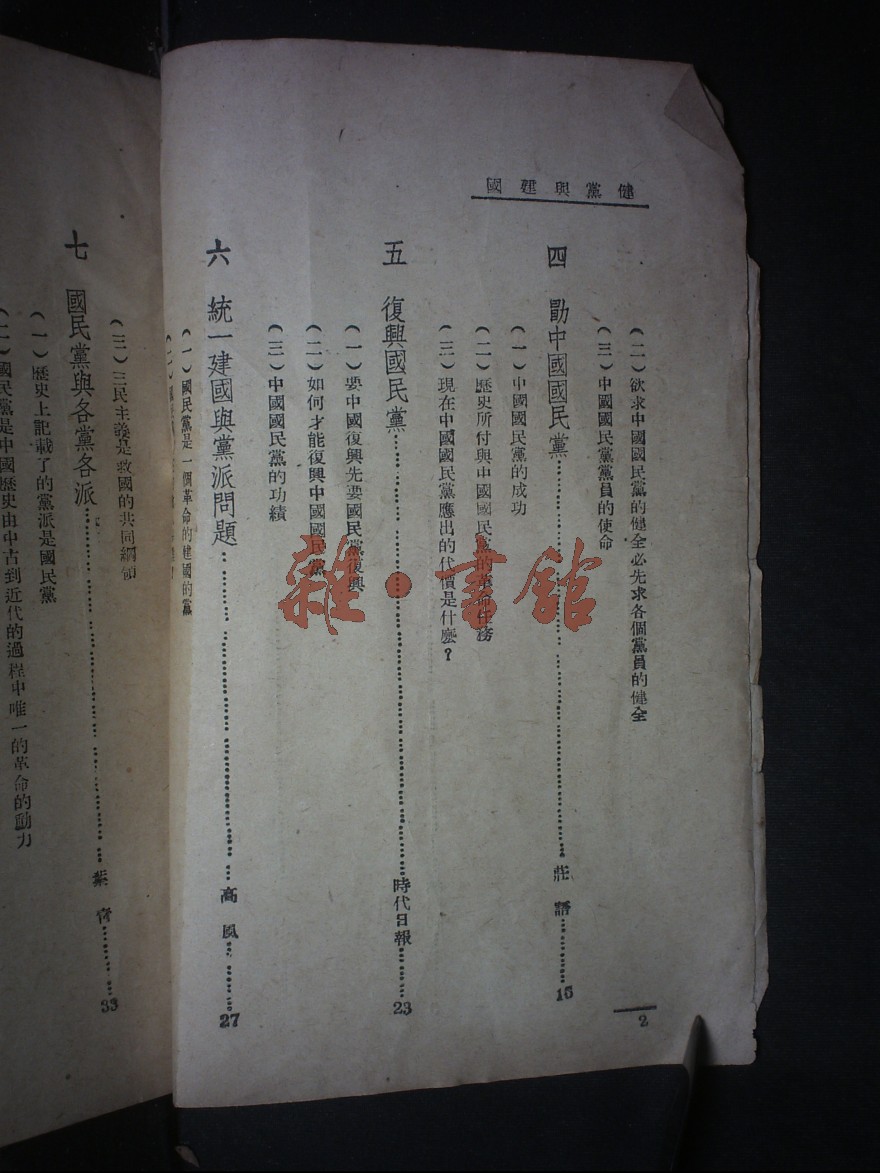 健黨與建國
(二)欲求中國國民黨的健全必先求各個黨員的健全
(三)中國國民黨黨員的使命
四 勖中國國民黨……莊 語……15
(一)中國國民黨的成功
(二)歷史所付與中國國民黨的革命任務
(三)現在中國國民黨應出的代價是什麼?
五 復興國民黨……時代日報……23
(一)要中國復興先要國民黨復興
(二)如何才能復興中國國民黨
(三)中國國民黨的功績
六 統一建國與黨派問題……高 風……27
(一)國民黨是一個革命的建國的黨
(二)
2
(三)三民主義是救國的共同綱領
七 國民黨與各黨各派……葉 青……33
(一)歷史上記載了的黨派是國民黨
(二)國民黨是中國歷史由中古到近代的過程中唯一的革命的動力
雜·書館